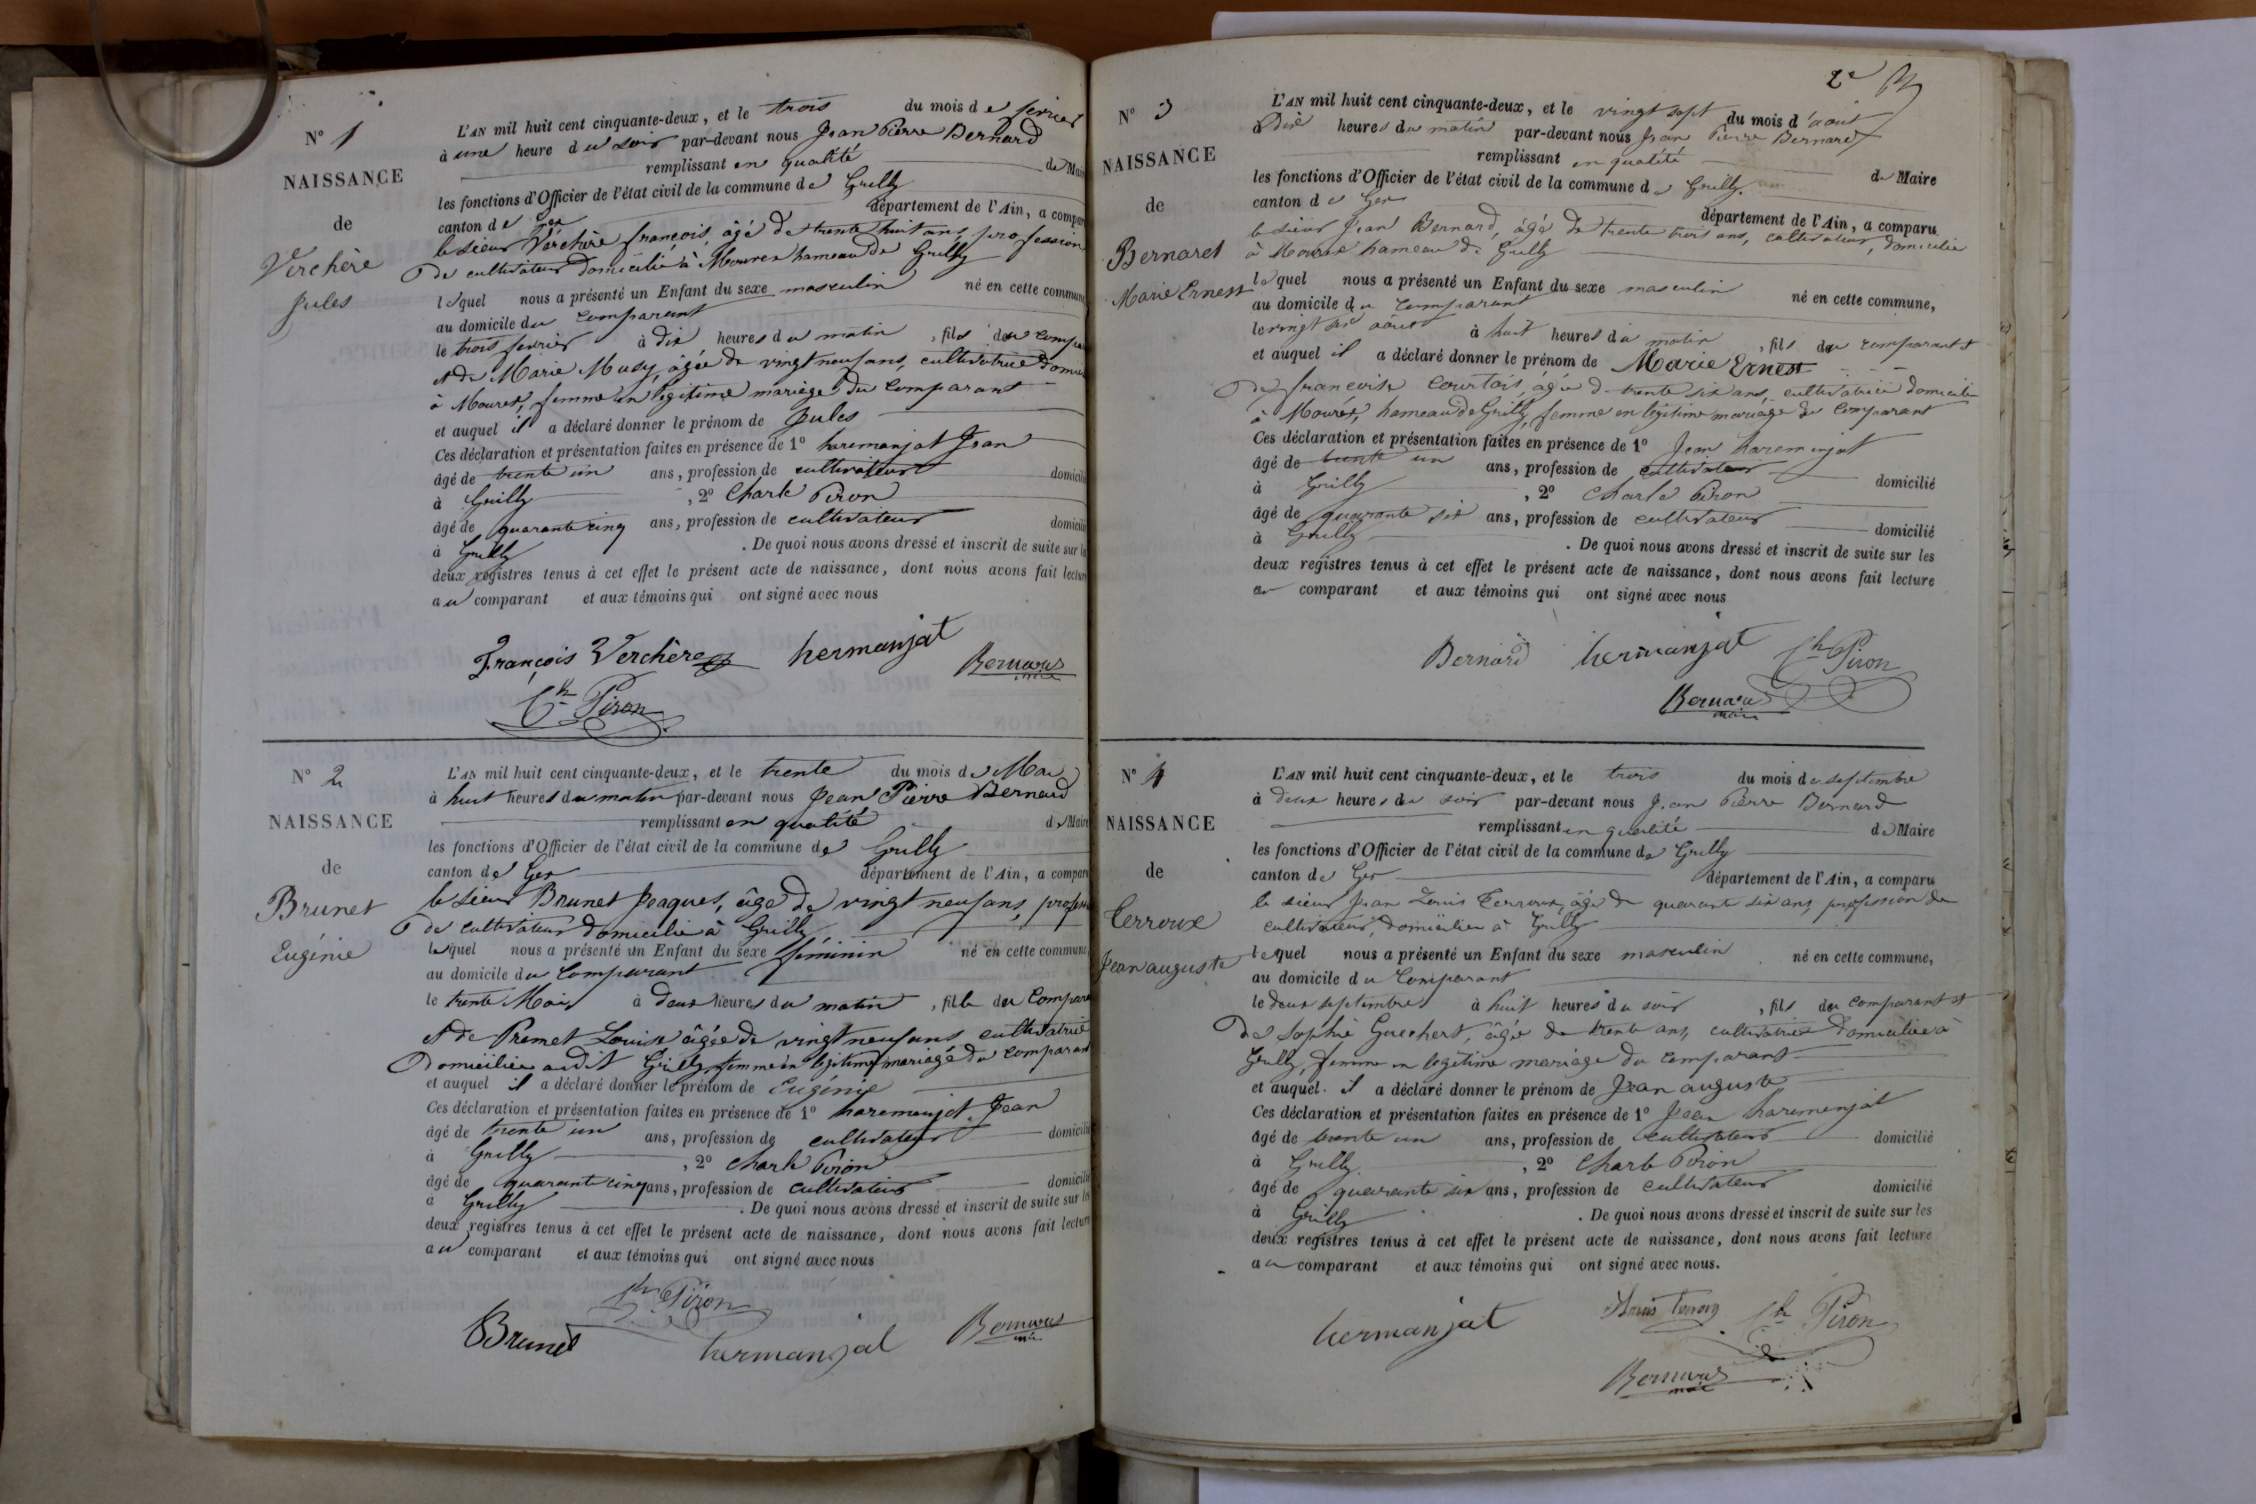 N° 1
NAISSANCE
de
Verchère
Jules
L'AN mil huit cent cinquante-deux, et le trois du mois de fevrier
à une heure du soir par-devant nous Jean Pierre Bernard
remplissant en qualité de Mai
les fonctions d'Officier de l'état civil de la commune de Grilly
canton de Gex département de l'Ain, a compar
le sieur Verchère françois, âgé de trente huit ans, profession
de cultivateur domicilié à Mourex hameau de Grilly
lequel nous a présenté un Enfant du sexe masculin né en cette commune
au domicile du comparant
le trois fevrier à dix heures du matin, fils du compa
et de Marie Musy, âgée de vingt neuf ans, cultivatrice domici
à Mourex, femme en légitime mariage du comparant
et auquel il a déclaré donner le prénom de Jules
Ces déclaration et présentation faites en présence de 1° haremanjat Jean
âgé de trente un ans, profession de cultivateur domicilié
à Grilly, 2° Charle Piron
âgé de quarante cinq ans, profession de cultivateur domicilié
à Grilly. De quoi nous avons dressé et inscrit de suite sur le
deux registres tenus à cet effet le présent acte de naissance, dont nous avons fait lectur
au comparant et aux témoins qui ont signé avec nous
François Verchère hermanjat Bernard
maire
Ch Piron
N° 2
NAISSANCE
de
Brunet
Eugénie
L'AN mil huit cent cinquante-deux, et le trente du mois de Mai
à huit heures du matin par-devant nous Jean Pierre Bernard
remplissant en qualité de Maire
les fonctions d'Officier de l'état civil de la commune de Grilly
canton de Gex département de l'Ain, a compar
le sieur Brunet Jeaques, âgé de vingt neuf ans, profess
de cultivateur domicilié à Grilly
lequel nous a présenté un Enfant du sexe féminin né en cette commune
au domicile du Comparant
le trente Mai à deux heures du matin, fille du Compara
et de Premet Louise âgée de vingt neuf ans cultivatrice
Domiciliée audit Grilly, femme en légitime mariage du comparant
et auquel il a déclaré donner le prénom de Eugénie
Ces déclaration et présentation faites en présence de 1° haremanjat Jean
âgé de trente un ans, profession de cultivateur domicilié
à Grilly, 2° Charle Piron
âgé de quarante cinq ans, profession de cultivateur domicilié
à Grilly. De quoi nous avons dressé et inscrit de suite sur les
deux registres tenus à cet effet le présent acte de naissance, dont nous avons fait lecture
au comparant et aux témoins qui ont signé avec nous
Ch Piron
Brunet hermanjat Bernard
maire
2e
N° 3
NAISSANCE
de
Bernard
Marie Ernest
L'AN mil huit cent cinquante-deux, et le vingt sept du mois d'août
à Dix heures du matin par-devant nous Jean Pierre Bernard
remplissant en qualité de Maire
les fonctions d'Officier de l'état civil de la commune de Grilly
canton de Gex département de l'Ain, a comparu
le sieur Jean Bernard, âgé de trente trois ans, cultivateur, domicilié
à Mourex hameau de Grilly
lequel nous a présenté un Enfant du sexe masculin né en cette commune,
au domicile du comparant
le vingt six août à huit heures du matin, fils du comparant et
et auquel il a déclaré donner le prénom de Marie Ernest
De françoise Courtois, âgée de trente six ans, cultivatrice domiciliée
à Mourex, hameau de Grilly, femme en légitime mariage du comparant
Ces déclaration et présentation faites en présence de 1° Jean haremenjat
âgé de trente un ans, profession de cultivateur domicilié
à Grilly, 2° Charle Piron
âgé de quarante six ans, profession de cultivateur domicilié
à Grilly. De quoi nous avons dressé et inscrit de suite sur les
deux registres tenus à cet effet le présent acte de naissance, dont nous avons fait lecture
au comparant et aux témoins qui ont signé avec nous
Bernard hermanjat Ch Piron
Bernard
maire
N° 4
NAISSANCE
de
Terroux
Jean auguste
L'AN mil huit cent cinquante-deux, et le trois du mois de septembre
à deux heures du soir par-devant nous Jean Pierre Bernard
remplissant en qualité de Maire
les fonctions d'Officier de l'état civil de la commune de Grilly
canton de Gex département de l'Ain, a comparu
le sieur Jean Louis Terroux, âgé de quarante six ans, profession de
cultivateur, domicilié à Grilly
lequel nous a présenté un Enfant du sexe masculin né en cette commune,
au domicile du Comparant
le deux septembre à huit heures du soir, fils du comparant et
De Sophie Guechert, âgée de trente ans, cultivatrice domiciliée à
Grilly, femme en légitime mariage du comparant
et auquel il a déclaré donner le prénom de Jean auguste
Ces déclaration et présentation faites en présence de 1° Jean haremenjat
âgé de trente un ans, profession de cultivateur domicilié
à Grilly, 2° Charle Piron
âgé de quarante six ans, profession de cultivateur domicilié
à Grilly. De quoi nous avons dressé et inscrit de suite sur les
deux registres tenus à cet effet le présent acte de naissance, dont nous avons fait lecture
au comparant et aux témoins qui ont signé avec nous.
hermanjat Ch Piron
Bernard
maire